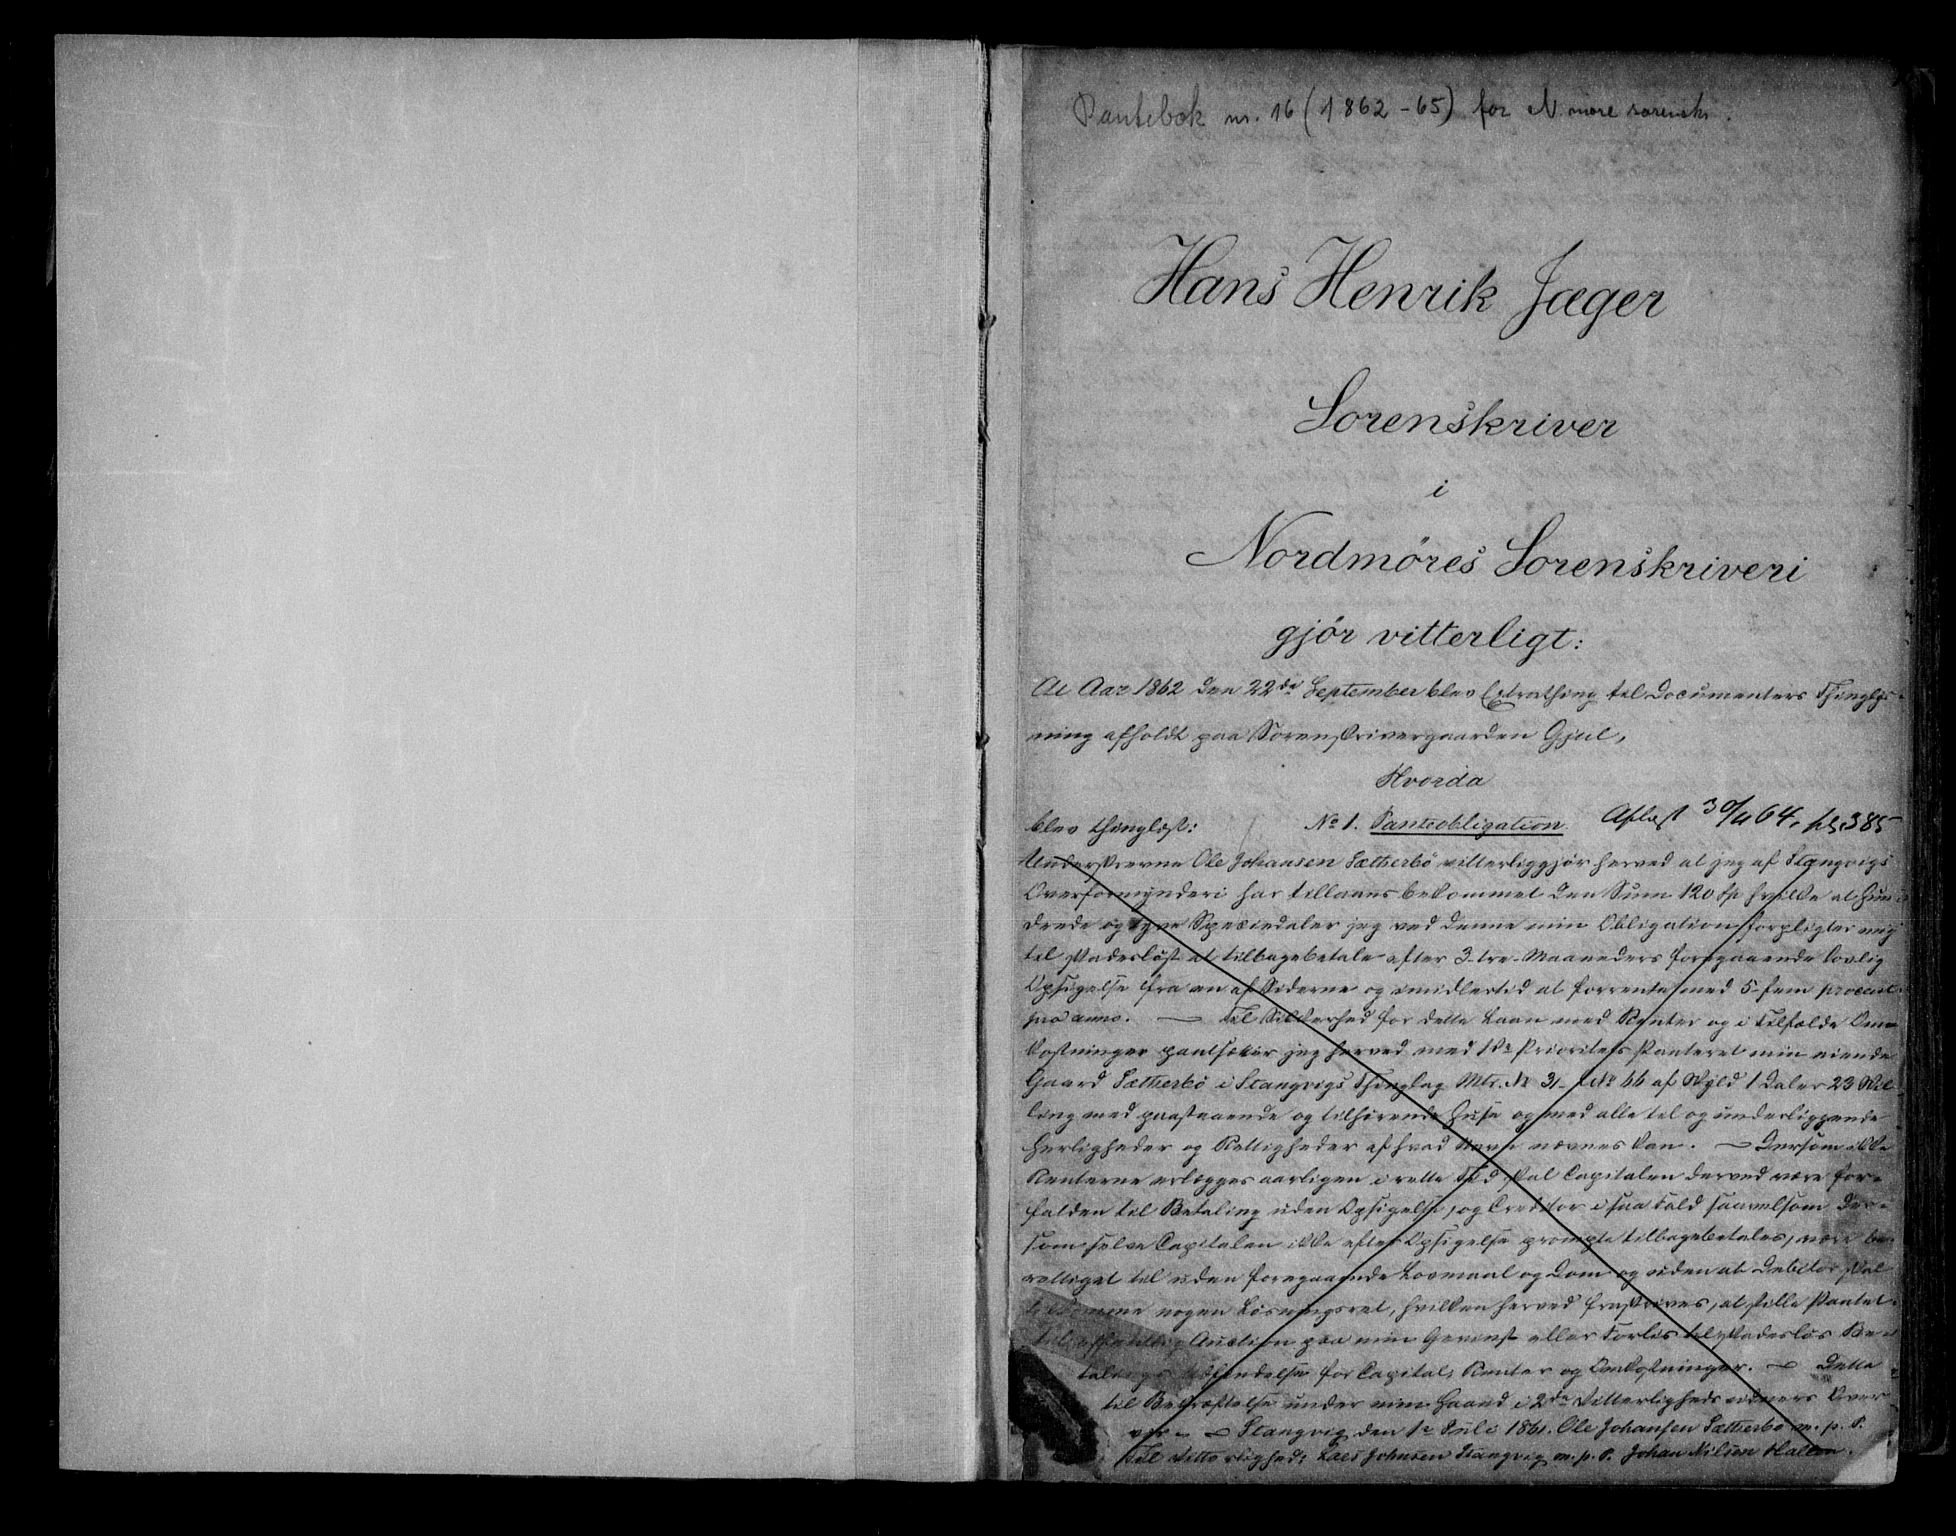 Pantebok nr. 16 (1862-65) for N. møre sorensk.
Hans Henrik Jæger
Sorenskriver
i
Nordmøres Sorenskriveri
gjör vitterligt:
At Aar 1862 den 22de September blev Extrathing til Documenters Thinglæs-
ning afholdt paa Sorenskrivergaarden Gjul,
Hvorda
blev thinglæst: No 1. Panteobligation. Aflæst 30/11 64,
Underskrevne Ole Johansen Sætherbö vitterliggjör herved at jeg af Stangvigs
Overformynderi har tillaans bekommet den Sum 120 Sp hvilke et Hun-
drede og tyve Speciedaler jeg ved denne min Obligation forpligter mig
til skadeslöst at tilbagebetale efter 3-tre-Maaneders foregaaende lovlig
Opsigelse fra en af Siderne og imidlertid at forrente med 5-fem procent
pro anno. — Til Sikkerhed for dette Laan med Renter og i Tilfælde Om-
kostninger pantsætter jeg herved med 1ste Prioritets Panteret min eiende
Gaard Sætherbö i Stangvigs Thinglag Mtr. No 31- LNo 66 af Skyld 1 Daler 23 Skil-
ling med paastaaende og tilhörende Huse og med alle til og underliggende
Herligheder og Rettigheder af hvad Navn nævnes kan. — Dersom ikke
Renterne erlægges aarligen i rette Tid skal Capitalen derved være for-
falden til Betaling uden Opsigelse, og Creditor i saa Fald saavelsom der-
som selve Capitalen ikke efter Opsigelse prompte tilbagebetales, være be-
rettiget til uden foregaaende Lovmaal og Dom og uden at Debitor skal
tilkomme nogen Lösningsret, hvilken herved fraskrives, at stille Pantet
til offentlig Auction paa min Gevinst eller Forlis til skadeslös Be-
talings Erholdelse for Capital, Renter og Omkostninger. — Dette
til Bekræftelse under min Haand i 2de Vitterlighedsvidners Over-
vær. — Stangvig den 1e Juli 1861. Ole Johansen Sætherbö m. p. P.
Til Vitterlighed: Lars Johnsen Stangvig m. p. P. Johan Nilsen Halten.